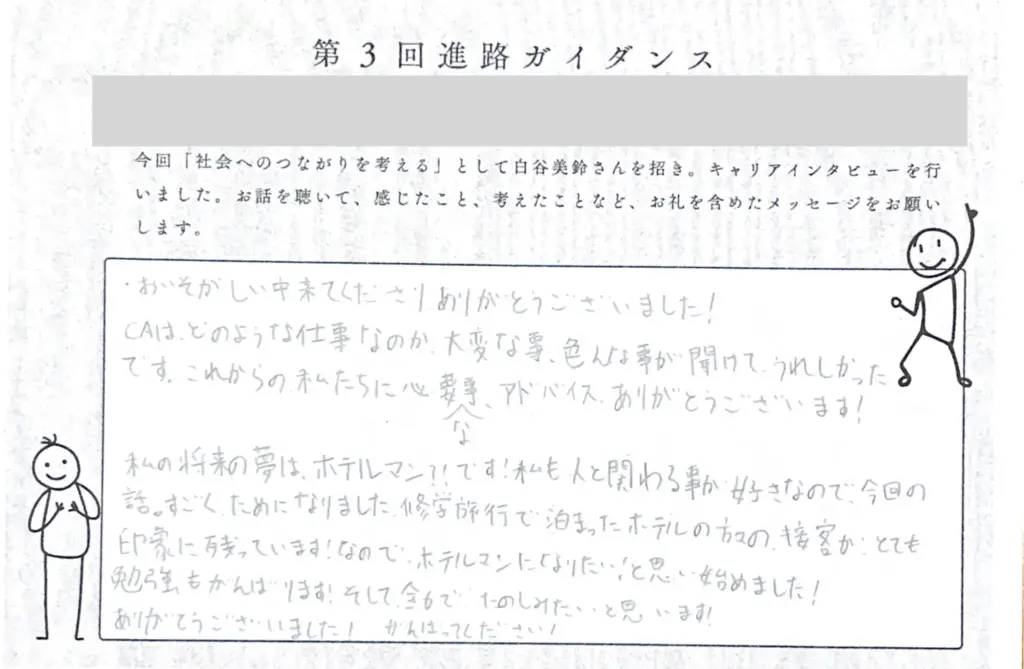 第３回進路ガイダンス
今回「社会へのつながりを考える」として白谷美鈴さんを招き。キャリアインタビューを行
いました。お話を聴いて、感じたこと、考えたことなど、お礼を含めたメッセージをお願い
します。
・おいそがしい中来てくださりありがとうございました!
CAは、どのような仕事なのか、大変な事、色んな事が聞けて、うれしかった
です。これからの私たちに心要な事、アドバイス、ありがとうございます!
私の将来の夢は、ホテルマン!!です!私も人と関わる事が好きなので、今回の
話。すごく、ためになりました。修学旅行で泊まったホテルの方々の、接客が、とても
印象に残っています!なので、ホテルマンになりたい!と思い始めました!
勉強もがんばります!そして、全力で、たのしみたいと思います!
ありがとうございました! がんばってください!